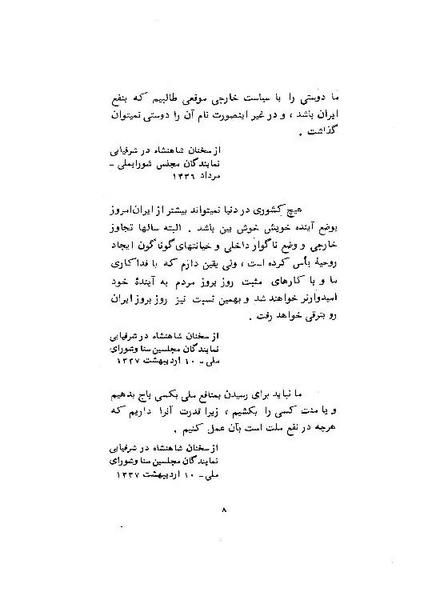 ما دوستی را با سیاست خارجی موقعی طالبیم که بنفع
ایران باشد ، و در غیر اینصورت نام آن را دوستی نمیتوان
گذاشت .
از سخنان شاهنشاه در شرفیابی
نمایندگان مجلس شورایملی -
مرداد ۱۳۳۶
هیچ کشوری در دنیا نمیتواند بیشتر از ایران امروز
بوضع آینده خویش خوش بین باشد . البته سالها تجاوز
خارجی و وضع ناگوار داخلی و خیانتهای گوناگون ایجاد
روحیهٔ یأس کرده است ، ولی یقین دارم که با فداکاری
ما و با کارهای مثبت روز بروز مردم به آیندهٔ خود
امیدوارتر خواهند شد و بهمین نسبت نیز روز بروز ایران
روبترقی خواهد رفت .
از سخنان شاهنشاه در شرفیابی
نمایندگان مجلسین سنا و شورای
ملی - ۱۰ اردیبهشت ۱۳۳۷
ما نباید برای رسیدن بمنافع ملی بکسی باج بدهیم
و یا منت کسی را بکشیم ، زیرا قدرت آنرا داریم که
هرچه در نفع ملت است بآن عمل کنیم .
از سخنان شاهنشاه در شرفیابی
نمایندگان مجلسین سنا و شورای
ملی - ۱۰ اردیبهشت ۱۳۳۷
۸